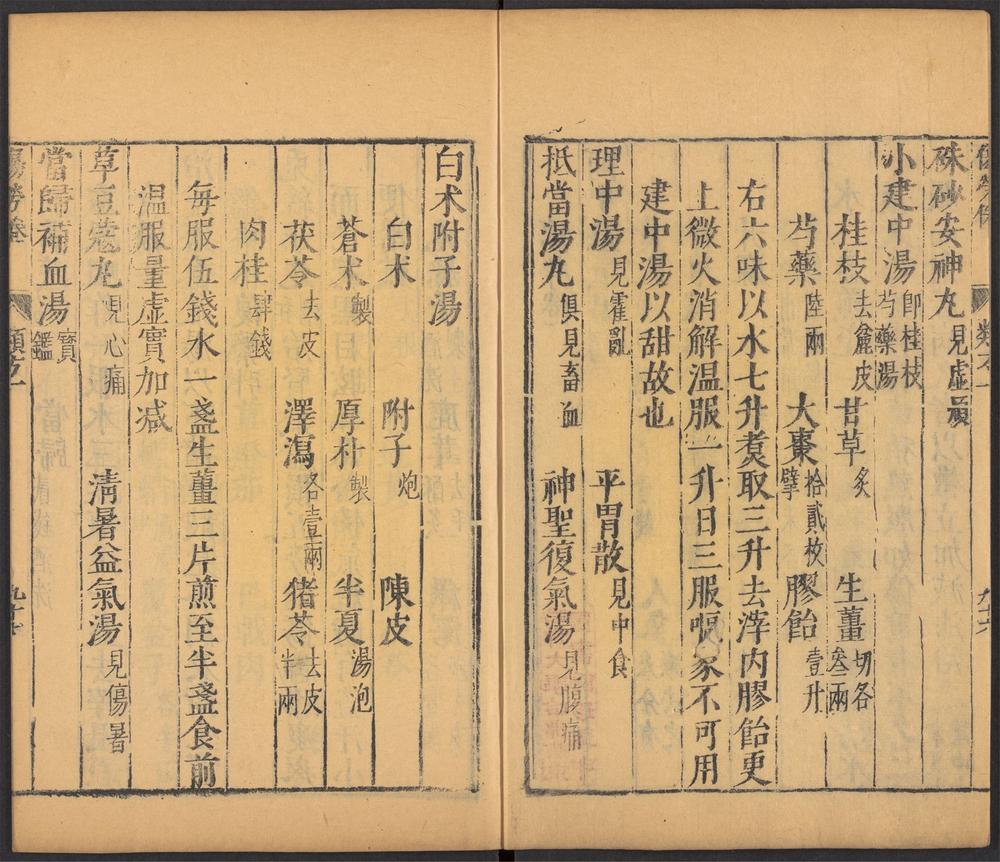 硃砂安神丸見虛損
小建中湯即桂枝芍藥湯
桂枝去麄皮 甘草炙 生薑切各叁兩
芍藥陸兩 大棗拾貳枚擘 膠飴壹升
右六味以水七升煑取三升去滓内膠飴更
上微火消解温服一升日三服嘔家不可用
建中湯以甜故也
理中湯見霍亂 平胃散見中食
抵當湯丸俱見畜血 神聖復氣湯見腹痛
白术附子湯
白术 附子炮 陳皮
蒼术製 厚朴製 半夏湯泡
茯苓去皮 澤瀉各壹兩 猪苓去皮半兩
肉桂肆錢
每服伍錢水一盞生薑三片煎至半盞食前
温服量虛實加减
草豆蔻丸見心痛 清暑益氣湯見傷暑
當歸補血湯寳鑑